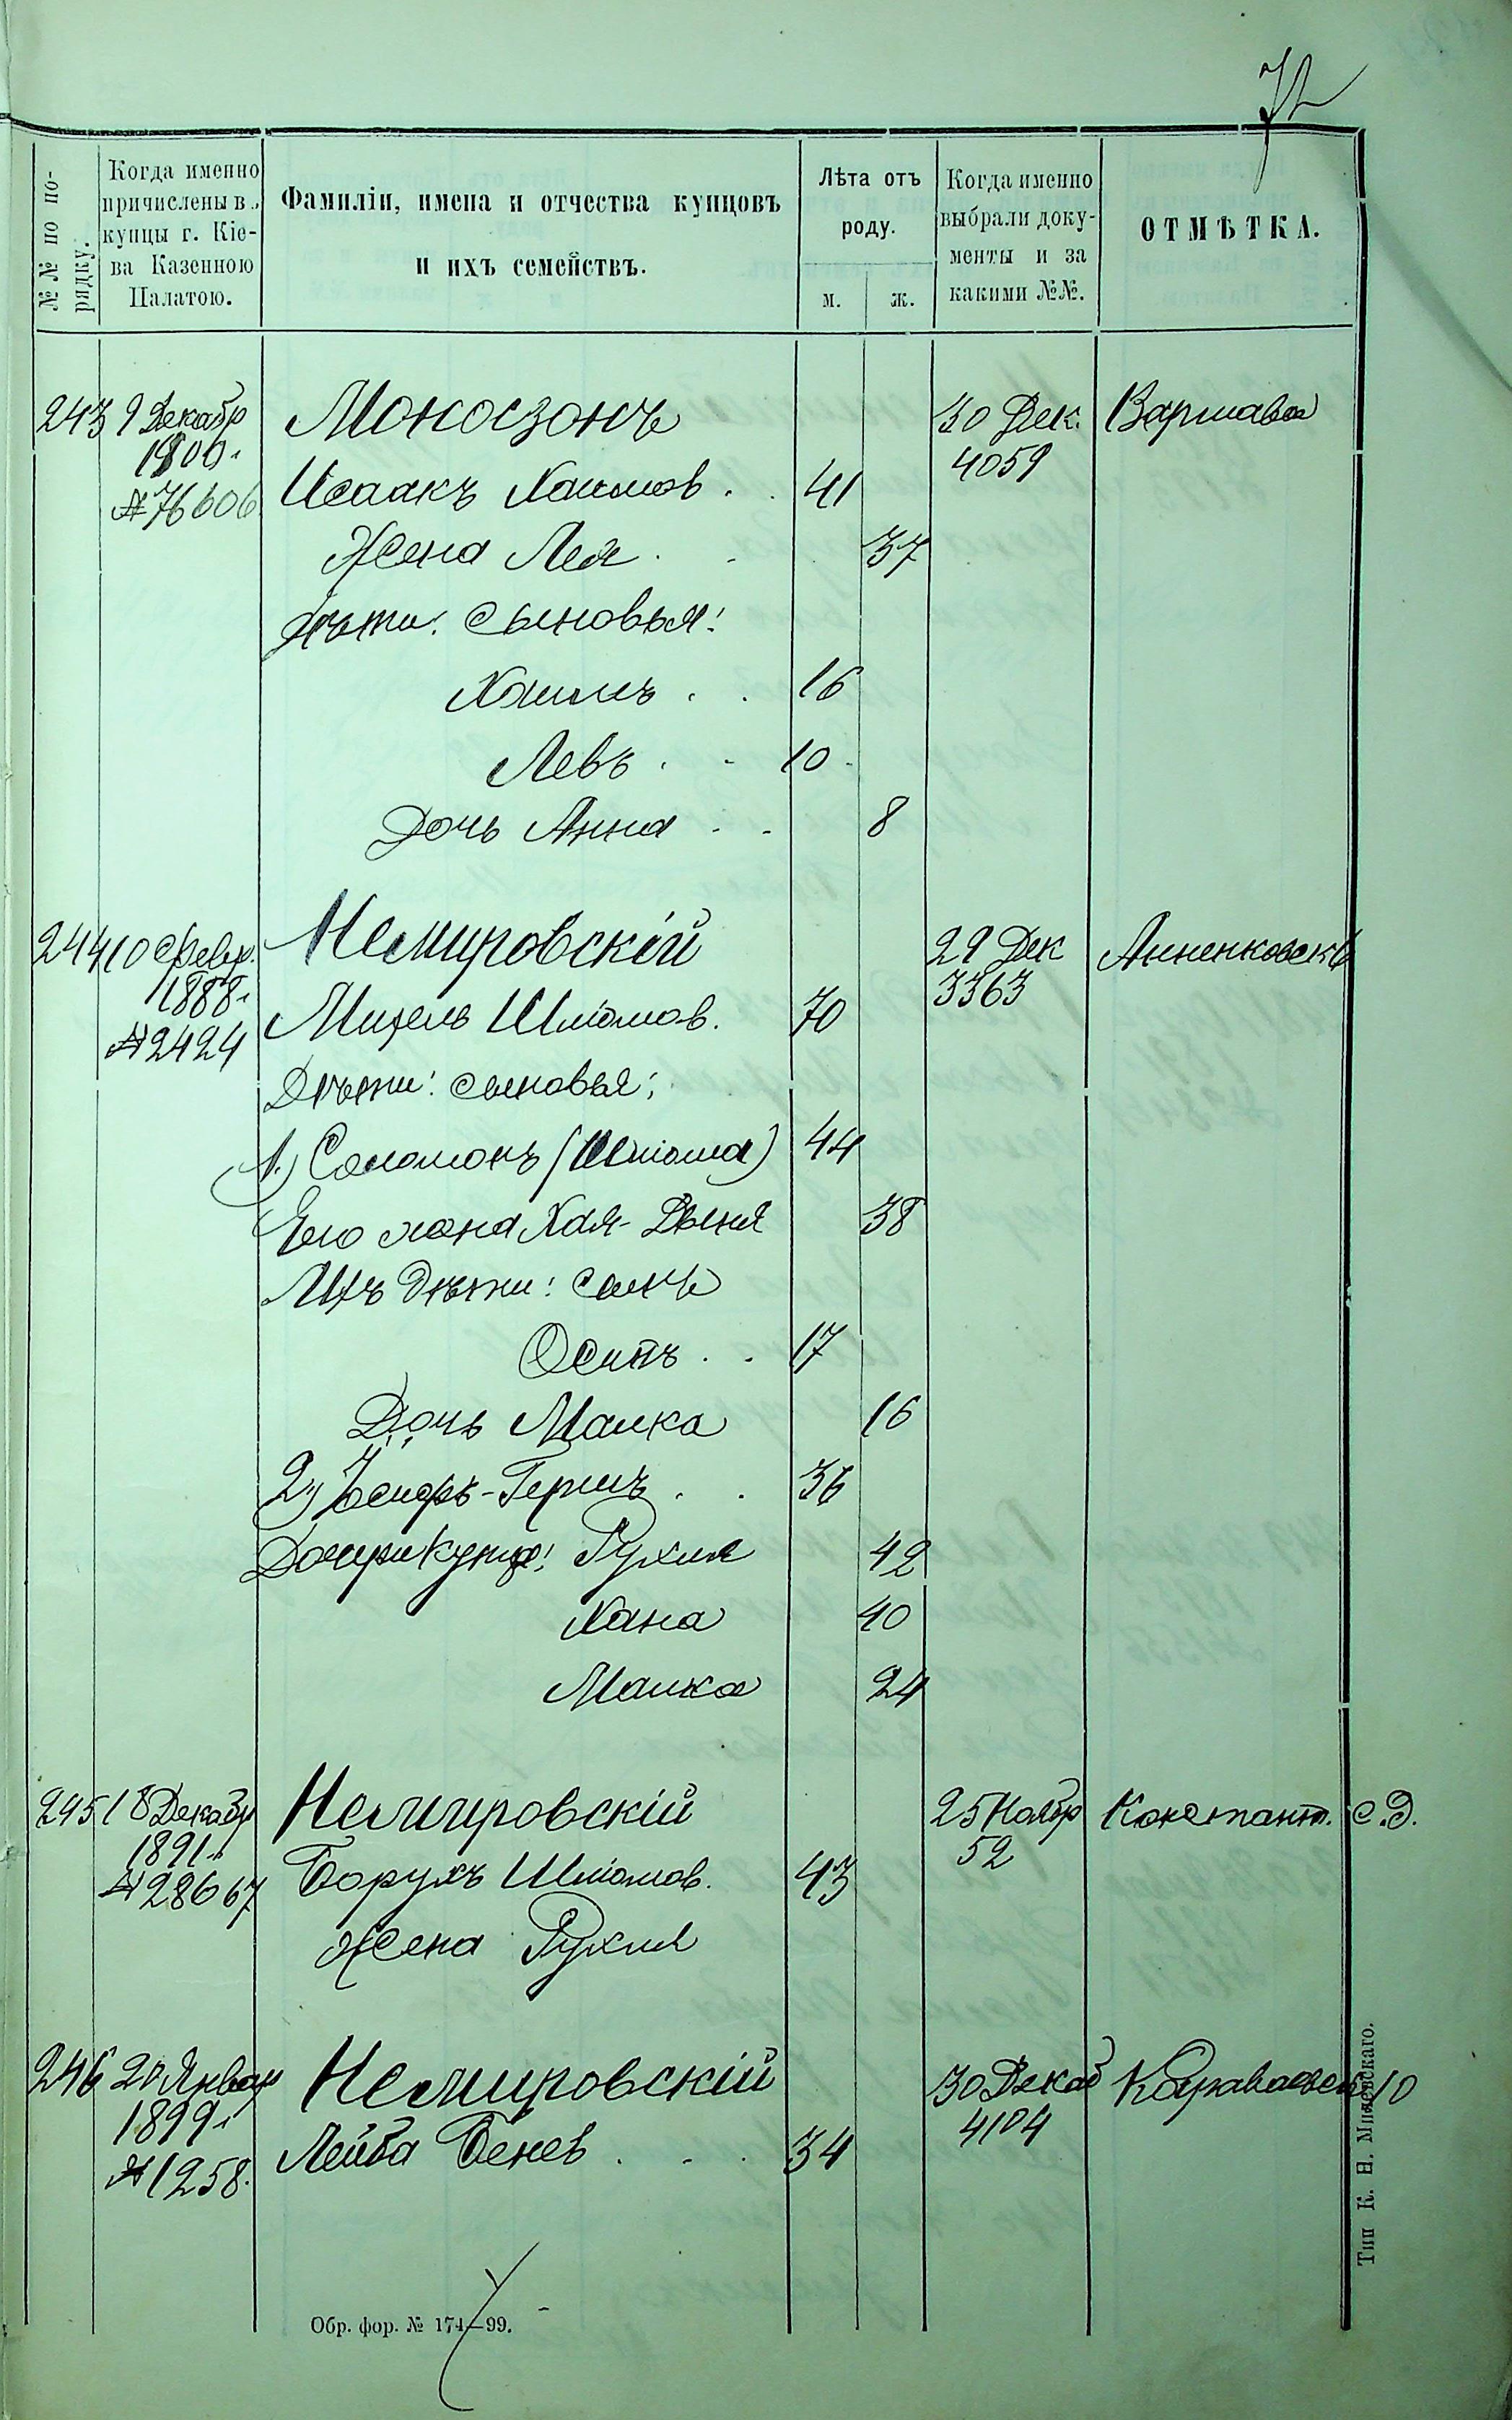 72
№№ по по-
рядку.
Когда именно
причислены в
купцы г. Кіе-
ва Казенною
Палатою.
Фамиліи, имена и отчества купцовъ
и ихъ семействъ.
Лѣта отъ
роду.
м. ж.
Когда именно
выбрали доку-
менты и за
какими №№.
ОТМѢТКА.
243 9 Декабр Мокосзонъ 30 Дек. Варшава
1900. 4059
№ 76606 Исаакъ Хаимов. 41
Жена Лея 37
Дѣти: сыновья:
Хаимъ 16
Левъ 10
Дочь Анна 8
244 10 Февр. Немировскій 29 Дек Анненковск
1888. 3363
№ 2424 Михель Шліомов. 70
Дѣти: сыновья:
1) Соломонъ (Шліома) 44
Его жена Хая-Двеня 38
Ихъ дѣти: сынъ
Осипъ 17
Дочь Малка 16
2) Іосифъ-Гершъ 36
Дочери купца: Рухля 42
Хана 40
Малка 24
245 18 Декабр Немировскій 25 Ноябр Константин. с.д.
1891 52
№ 28667 Борухъ Шліомов. 43
Жена Рухля
246 20 Январ Немировскій 30 Декаб Караваевск 10
1899 4104
№ 1258. Лейба Бенев 34
Обр. фор. № 174—99.
Тип К. Н. Милевскаго.